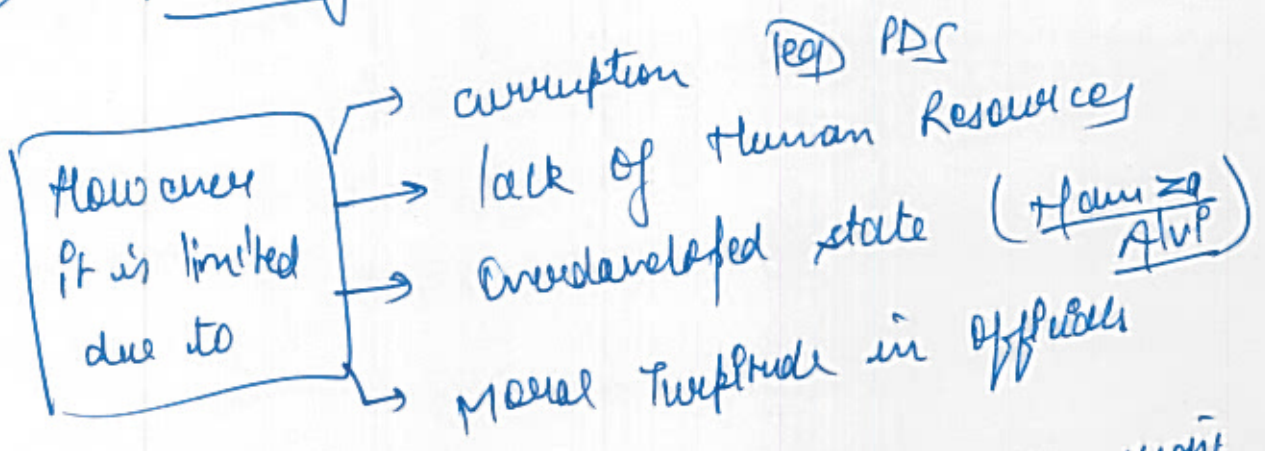 However
it is limited
due to
→ curruption (eg) PDS
→ lack of Human Resources
→ Overdeveloped state (Hamza Alvi)
→ Moral Turpitude in Officials